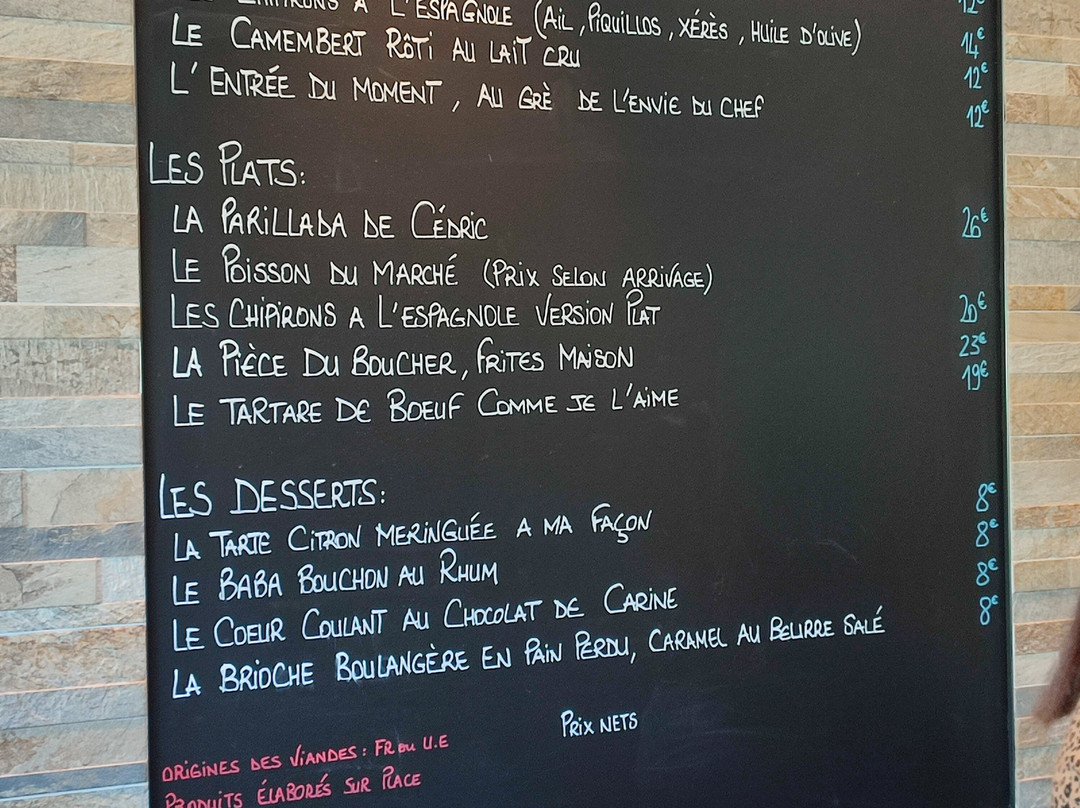 CHIPIRONS A L'ESPAGNOLE (AIL, PIQUILLOS, XÉRÈS, HUILE D'OLIVE) 14€
LE CAMEMBERT RÔTI AU LAIT CRU 12€
L'ENTRÉE DU MOMENT, AU GRÈ DE L'ENVIE DU CHEF 12€
LES PLATS:
LA PARILLADA DE CÉDRIC 26€
LE POISSON DU MARCHÉ (PRIX SELON ARRIVAGE)
LES CHIPIRONS A L'ESPAGNOLE VERSION PLAT 20€
LA PIÈCE DU BOUCHER, FRITES MAISON 23€
LE TARTARE DE BOEUF COMME JE L'AIME 19€
LES DESSERTS:
LA TARTE CITRON MERINGUÉE A MA FAÇON 8€
LE BABA BOUCHON AU RHUM 8€
LE COEUR COULANT AU CHOCOLAT DE CARINE 8€
LA BRIOCHE BOULANGÈRE EN PAIN PERDU, CARAMEL AU BEURRE SALÉ 8€
PRIX NETS
ORIGINES DES VIANDES : FR OU U.E
PRODUITS ÉLABORÉS SUR PLACE